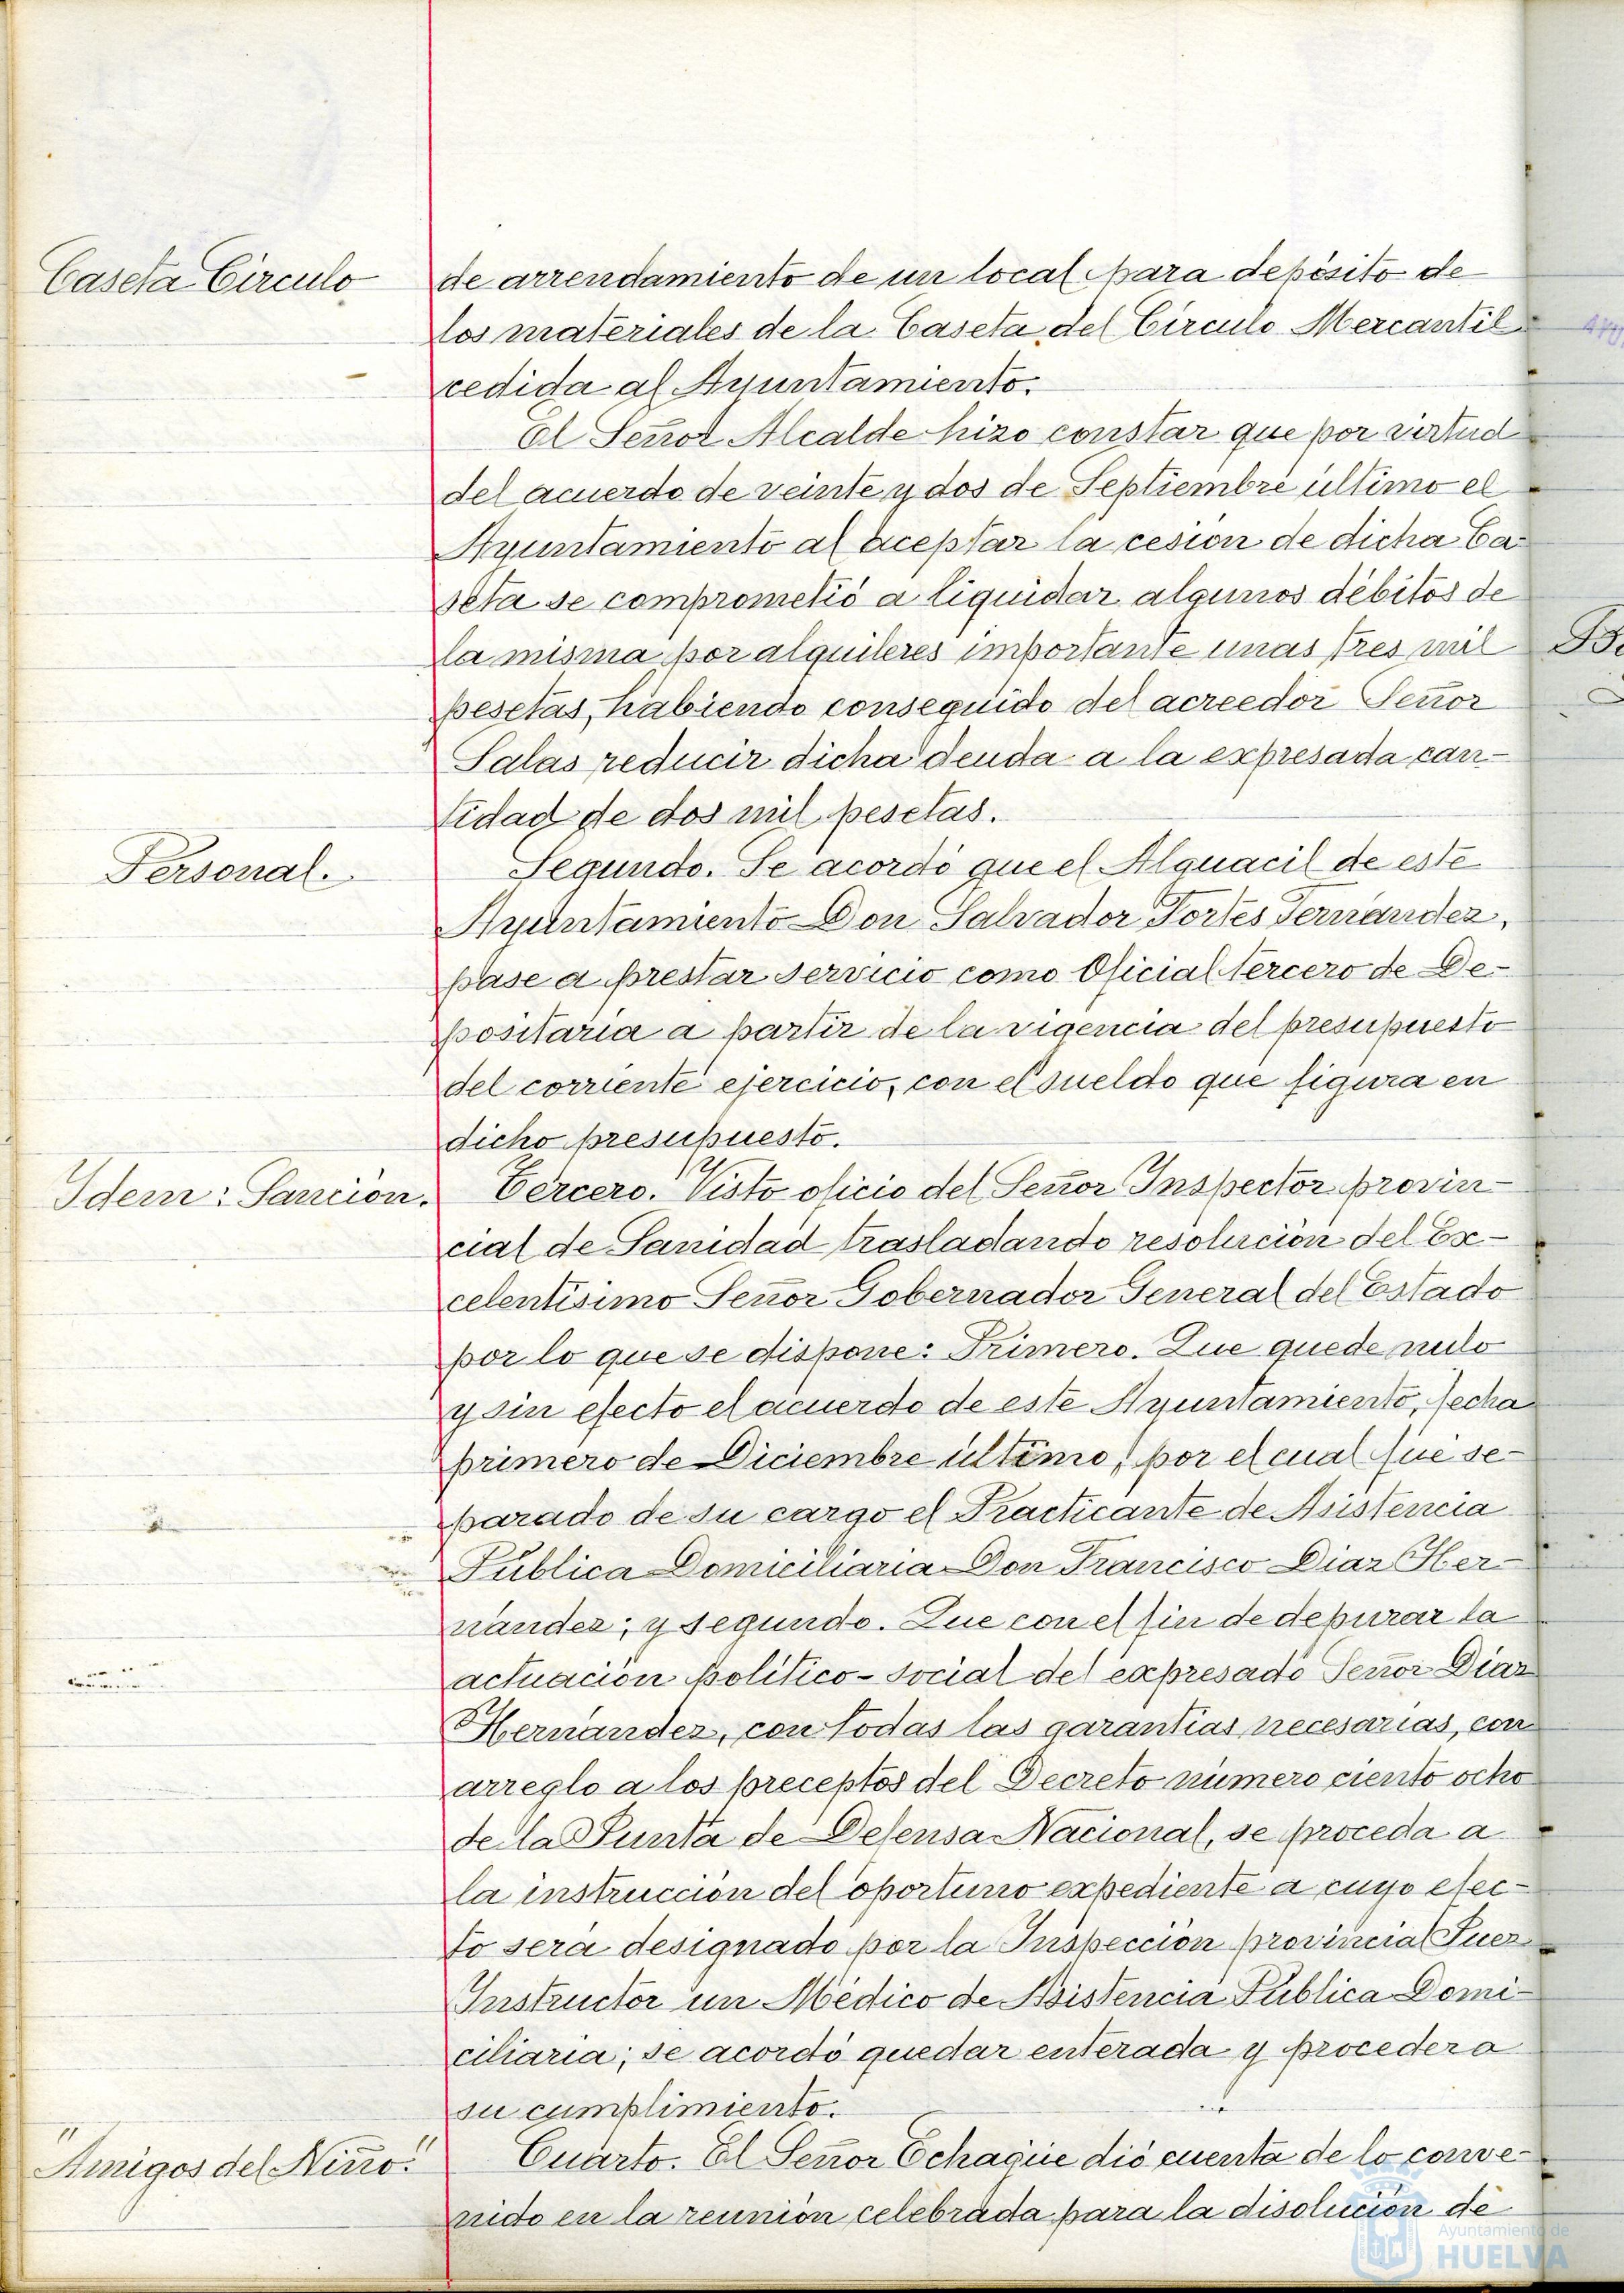 Caseta Círculo
de arrendamiento de un local para depósito de
los materiales de la Caseta del Círculo Mercantil
cedida al Ayuntamiento.
El Señor Alcalde hizo constar que por virtud
del acuerdo de veinte y dos de Septiembre último el
Ayuntamiento al aceptar la cesión de dicha Ca-
seta se comprometió a liquidar algunos débitos de
la misma por alquileres importante unas tres mil
pesetas, habiendo conseguido del acreedor Señor
Salas reducir dicha deuda a la expresada can-
tidad de dos mil pesetas.
Personal.
Segundo. Se acordó que el Alguacil de este
Ayuntamiento Don Salvador Fortes Fernández,
pase a prestar servicio como Oficial tercero de De-
positaría a partir de la vigencia del presupuesto
del corriente ejercicio, con el sueldo que figura en
dicho presupuesto.
Idem: Sanción.
Tercero. Visto oficio del Señor Inspector provin-
cial de Sanidad trasladando resolución del Ex-
celentísimo Señor Gobernador General del Estado
por lo que se dispone: Primero. Que quede nulo
y sin efecto el acuerdo de este Ayuntamiento, fecha
primero de Diciembre último, por el cual fué se-
parado de su cargo el Practicante de Asistencia
Pública Domiciliaria Don Francisco Díaz Her-
nández; y segundo. Que con el fin de depurar la
actuación político-social del expresado Señor Díaz
Hernández, con todas las garantías necesarias, con
arreglo a los preceptos del Decreto número ciento ocho
de la Junta de Defensa Nacional, se proceda a
la instrucción del oportuno expediente a cuyo efec-
to será designado por la Inspección provincial Juez
Instructor un Médico de Asistencia Pública Domi-
ciliaria; se acordó quedar enterada y proceder a
su cumplimiento.
"Amigos del Niño".
Cuarto. El Señor Echagüe dió cuenta de lo conve-
nido en la reunión celebrada para la disolución de
Ayuntamiento de
HUELVA